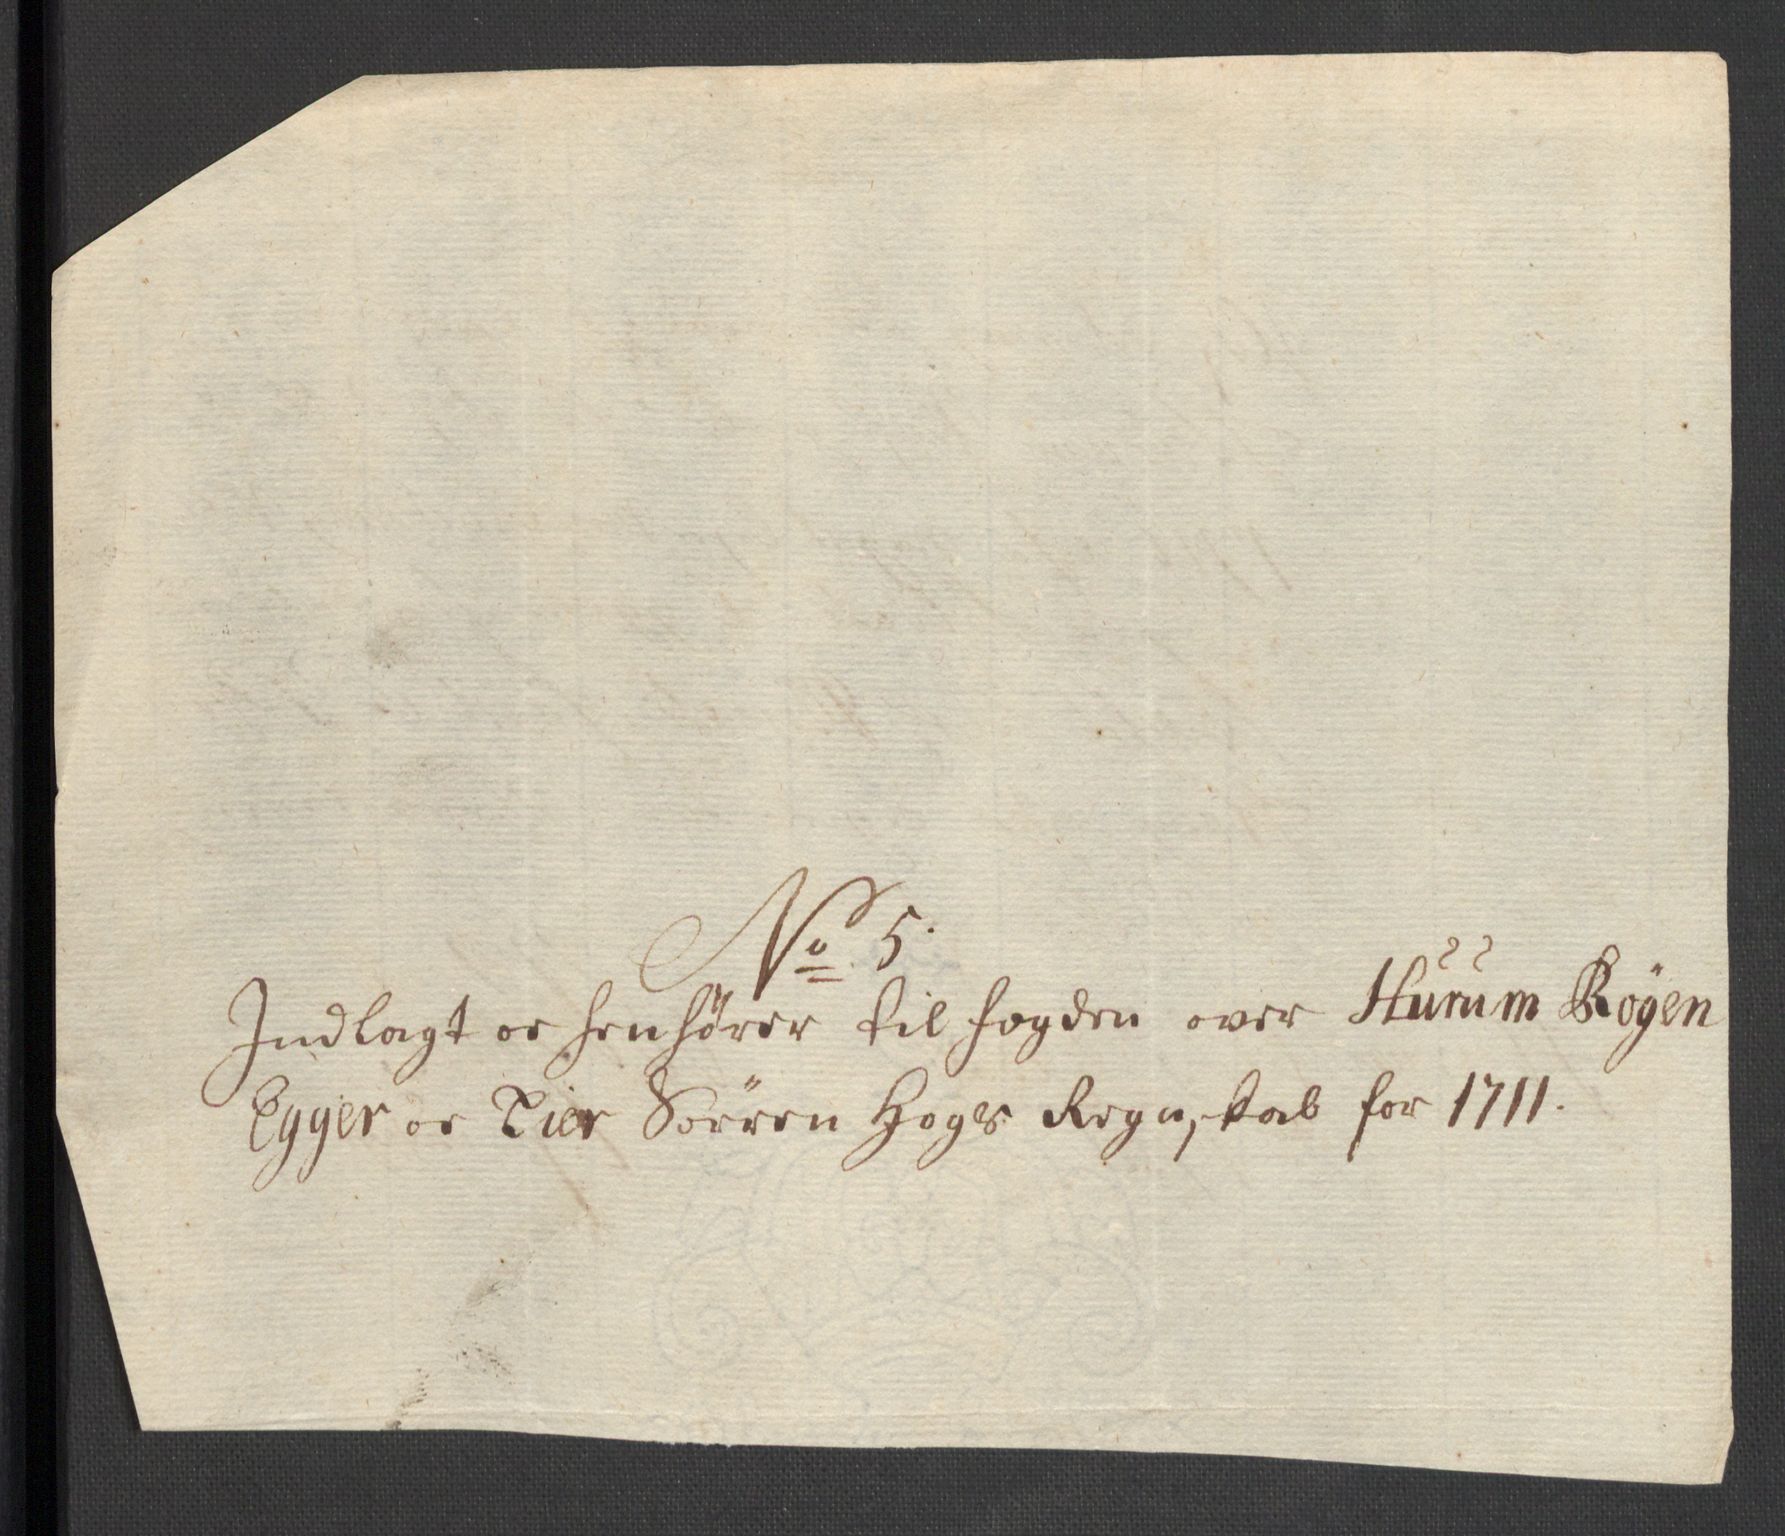 No 5.
Indlagt oc henhører til fogden over Hurum Röÿen
Egger oc Lier Sörren Hogs Regnskab for 1711.